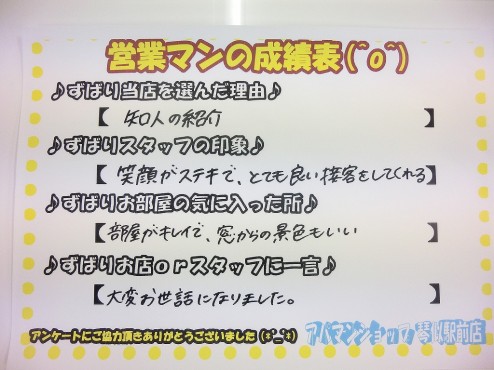 営業マンの成績表(^o^)
♪ずばり当店を選んだ理由♪
【 知人の紹介 】
♪ずばりスタッフの印象♪
【 笑顔がステキで、とても良い接客をしてくれる】
♪ずばりお部屋の気に入った所♪
【部屋がキレイで、窓からの景色もいい 】
♪ずばりお店orスタッフに一言♪
【大変お世話になりました。 】
アンケートにご協力頂きありがとうございました(*^_^*)
アパマンショップ琴似駅前店